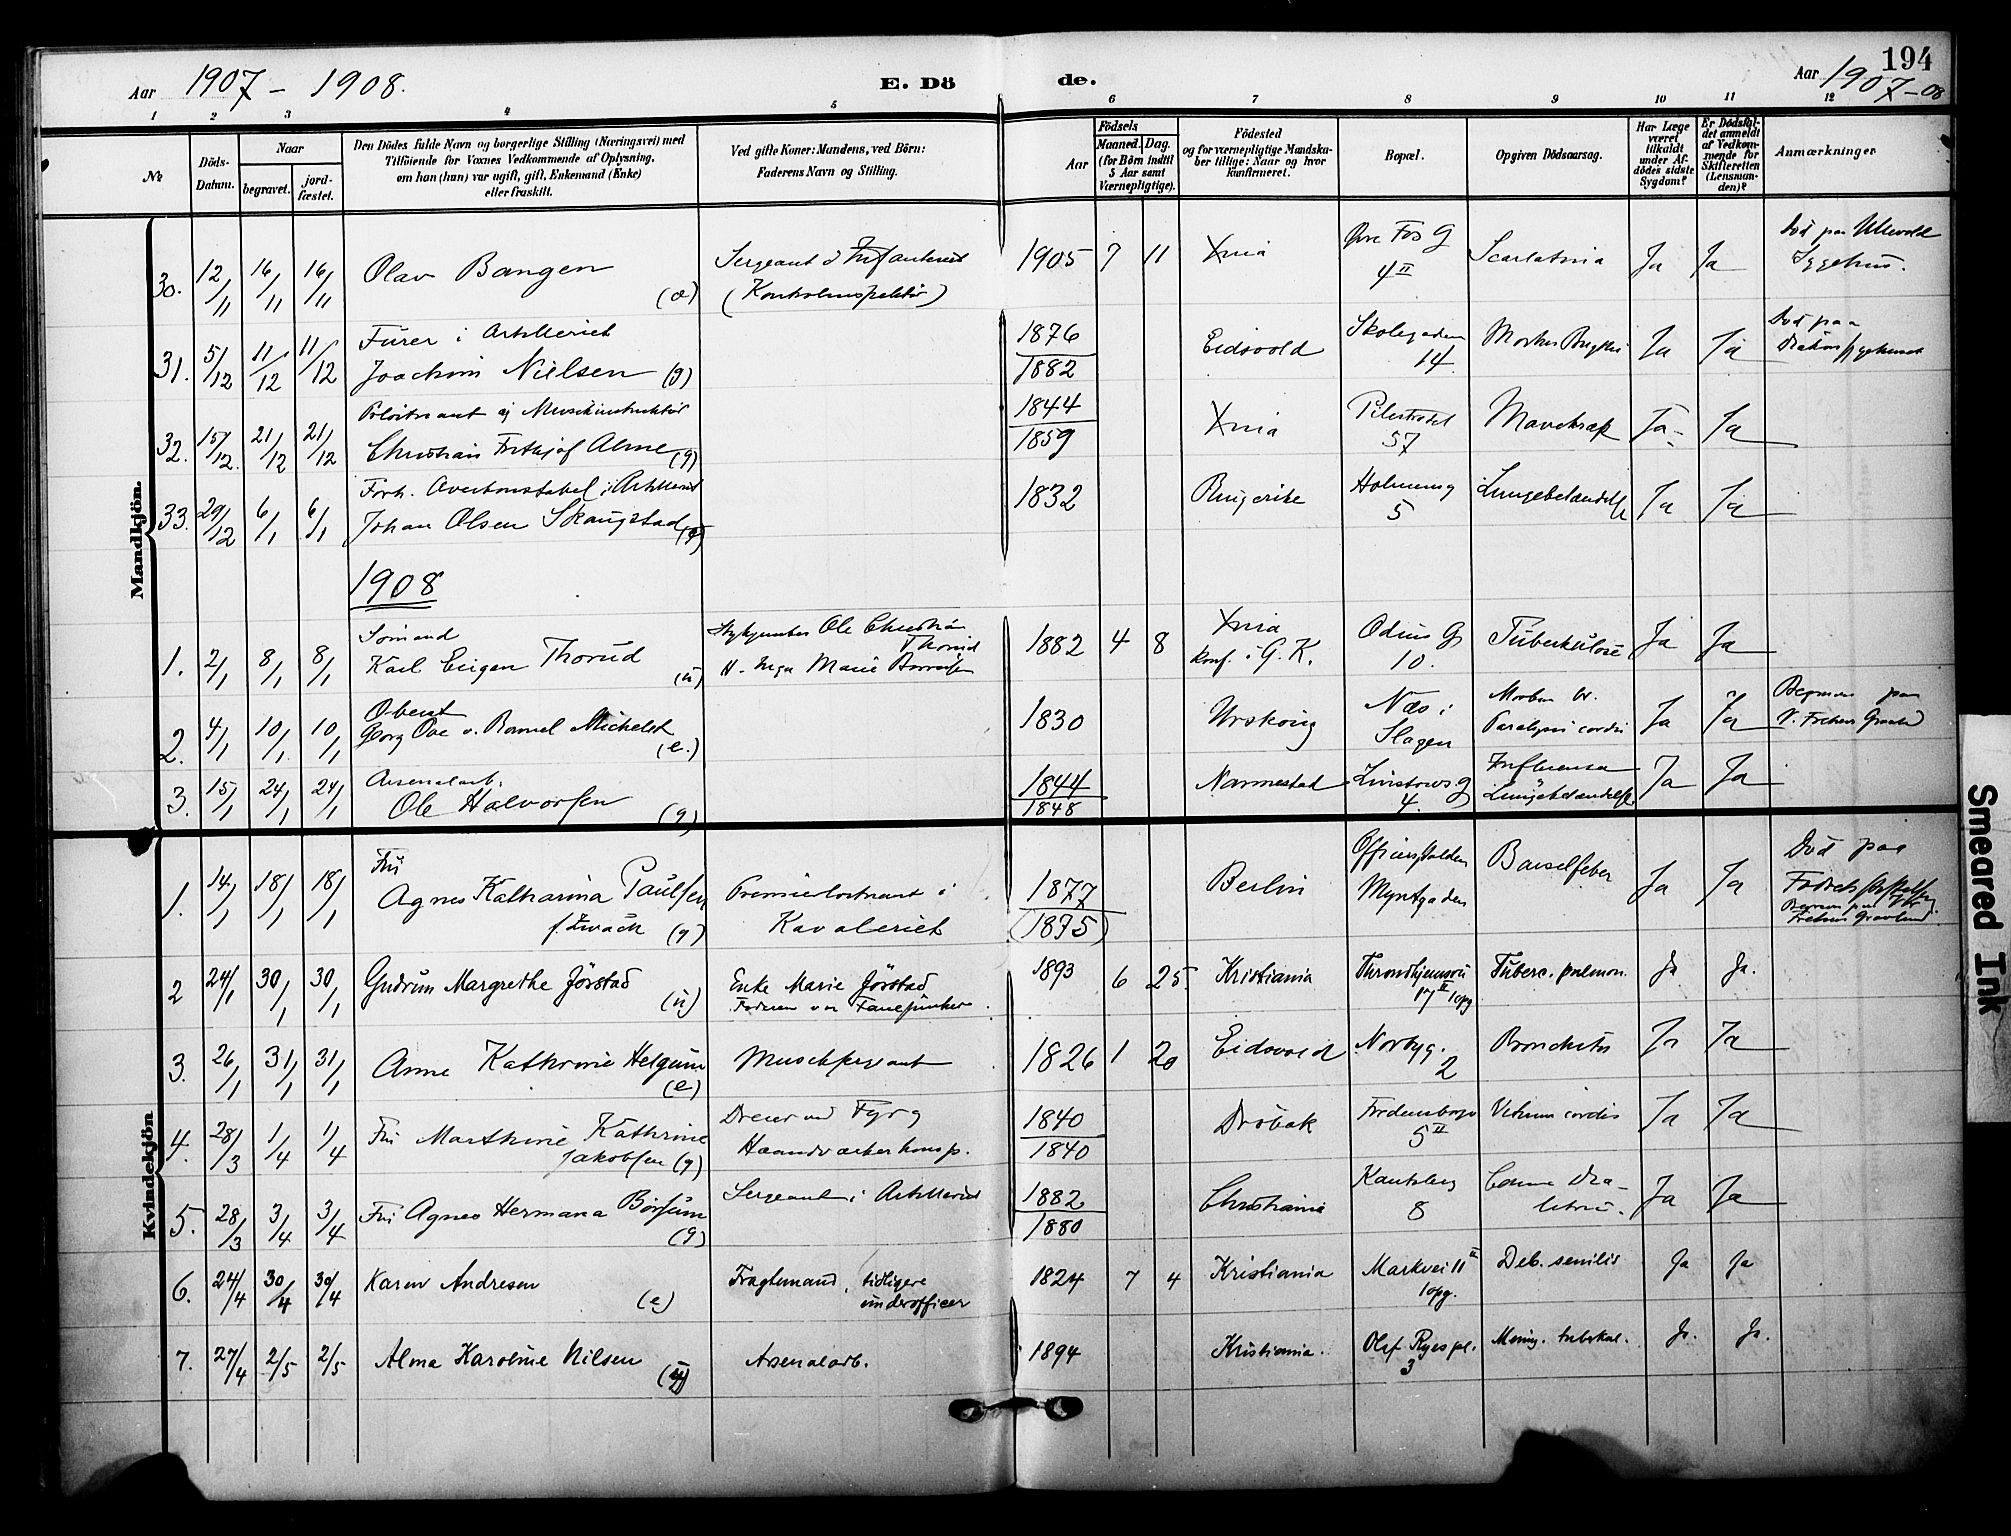 194
Aar 1907 – 1908.
E. Dö de.
Aar 1907–08
1 2 3 4 5 6 7 8 9 10 11 12
№
Döds-Datum.
Naar
begravet.
jordfæstet.
Den Dödes fulde Navn og borgerlige Stilling (Næringsvei) med
Tilföiende for Voxnes Vedkommende af Oplysning,
om han (hun) var ugift, gift, Enkemand (Enke)
eller fraskilt.
Ved gifte Koner: Mandens, ved Börn:
Faderens Navn og Stilling.
Födsels
Aar
Maaned. Dag.
(for Börn indtil
5 Aar samt
Værnepligtige).
Födested
og for værnepligtige Mandskaber tillige: Naar og hvor
konfirmeret.
Bopæl.
Opgiven Dödsaarsag.
Har Læge
været
tilkaldt
under Afdödes sidste
Sygdom?
Er Dödsfaldet anmeldt
af Vedkommende for
Skifteretten
(Lensmanden)?
Anmærkninger
Mandkjön.
30. 12/11 16/11 16/11 Olav Bangen (a) Sergeant i Infanteriet 1905 7 11 Xnia Øvre Fos G 4 II Scarlatina Ja Ja Död paa Ullevold Sygehus.
31. 5/12 11/12 11/12 Furer i Artilleriet
Joachim Nielsen (g) 1876 1882 Eidsvold Skolegaden 14 Morbus Brightii Ja Ja Död paa
32. 15/12 21/12 21/12
Christian Frithjof Alme (g) 1844 1859 Xnia Pilestrædet 57 Mavekræft Ja Ja
33. 29/12 6/1 6/1 Forh. i Artilleriet
Johan Olsen Skaugstad 1832 Ringerike Holmensg 5 Lungebetændelse Ja Ja
1908
1. 2/1 8/1 8/1 Sömand
Karl Eugen Thorud (u) Ole Christian Thorud
Inga Marie 1882 4 8 Xnia Konf. i G. K. Odins G 10. Tuberkulose Ja Ja
2. 4/1 10/1 10/1 Oberst
Georg Ove v. Michelet (e.) 1830 Urskoug Næs i Slagen Paralysis cordis Ja Ja paa V. Frelsers Gravlund
3. 15/1 24/1 24/1 Arsenalarb.
Ole Halvorsen (g) 1844 1848 Nannestad Linstows g 4. Influensa Lungebetændelse Ja Ja
Kvindekjön
1. 14/1 18/1 18/1 Fru
Agnes Katharina Paulsen (g) Premierlöitnant i
Kavaleriet 1877 (1875) Berlin Myntgaden Barselfeber Ja Ja Död paa
Frelsers Gravlund
2 24/1 30/1 30/1 Gudrun Margrethe Jörstad (u) Enke Marie Jörstad
Faderen var Fanejunker. 1893 6 25. Kristiania 17 II opg Tuberc. pulmon. Ja Ja.
3. 26/1 31/1 31/1 Anne Kathrine Helgum (e) Musicksergeant 1826 1 20 Eidsvold Norbyg. 2 Bronchitis Ja Ja
4. 28/3 1/4 1/4 Fru Marthine Kathrine
Jakobsen (g) Dreier ved Fyr og
Haandværkerkomp. 1840 1840 Dröbak Fredensborgv 5 II Vitium cordis Ja Ja
5. 28/3 3/4 3/4 Fru Agnes Hermana Börsum (g) Sergeant i Artilleriet 1882 1880 Christiania 8 Coma Ja Ja
6. 24/4 30/4 30/4 Karen Andresen (e) Fragtemand, tidligere
underofficer 1824 7 4 Kristiania Markvei 11 II opg. Deb. senilis Ja Ja
7. 27/4 2/5 2/5 Alma Karoline Nilsen (u) Arsenalarb. 1894 Kristiania. Olaf Ryes pl. 3 Mening. tuberkul. Ja. Ja.
Smeared Ink